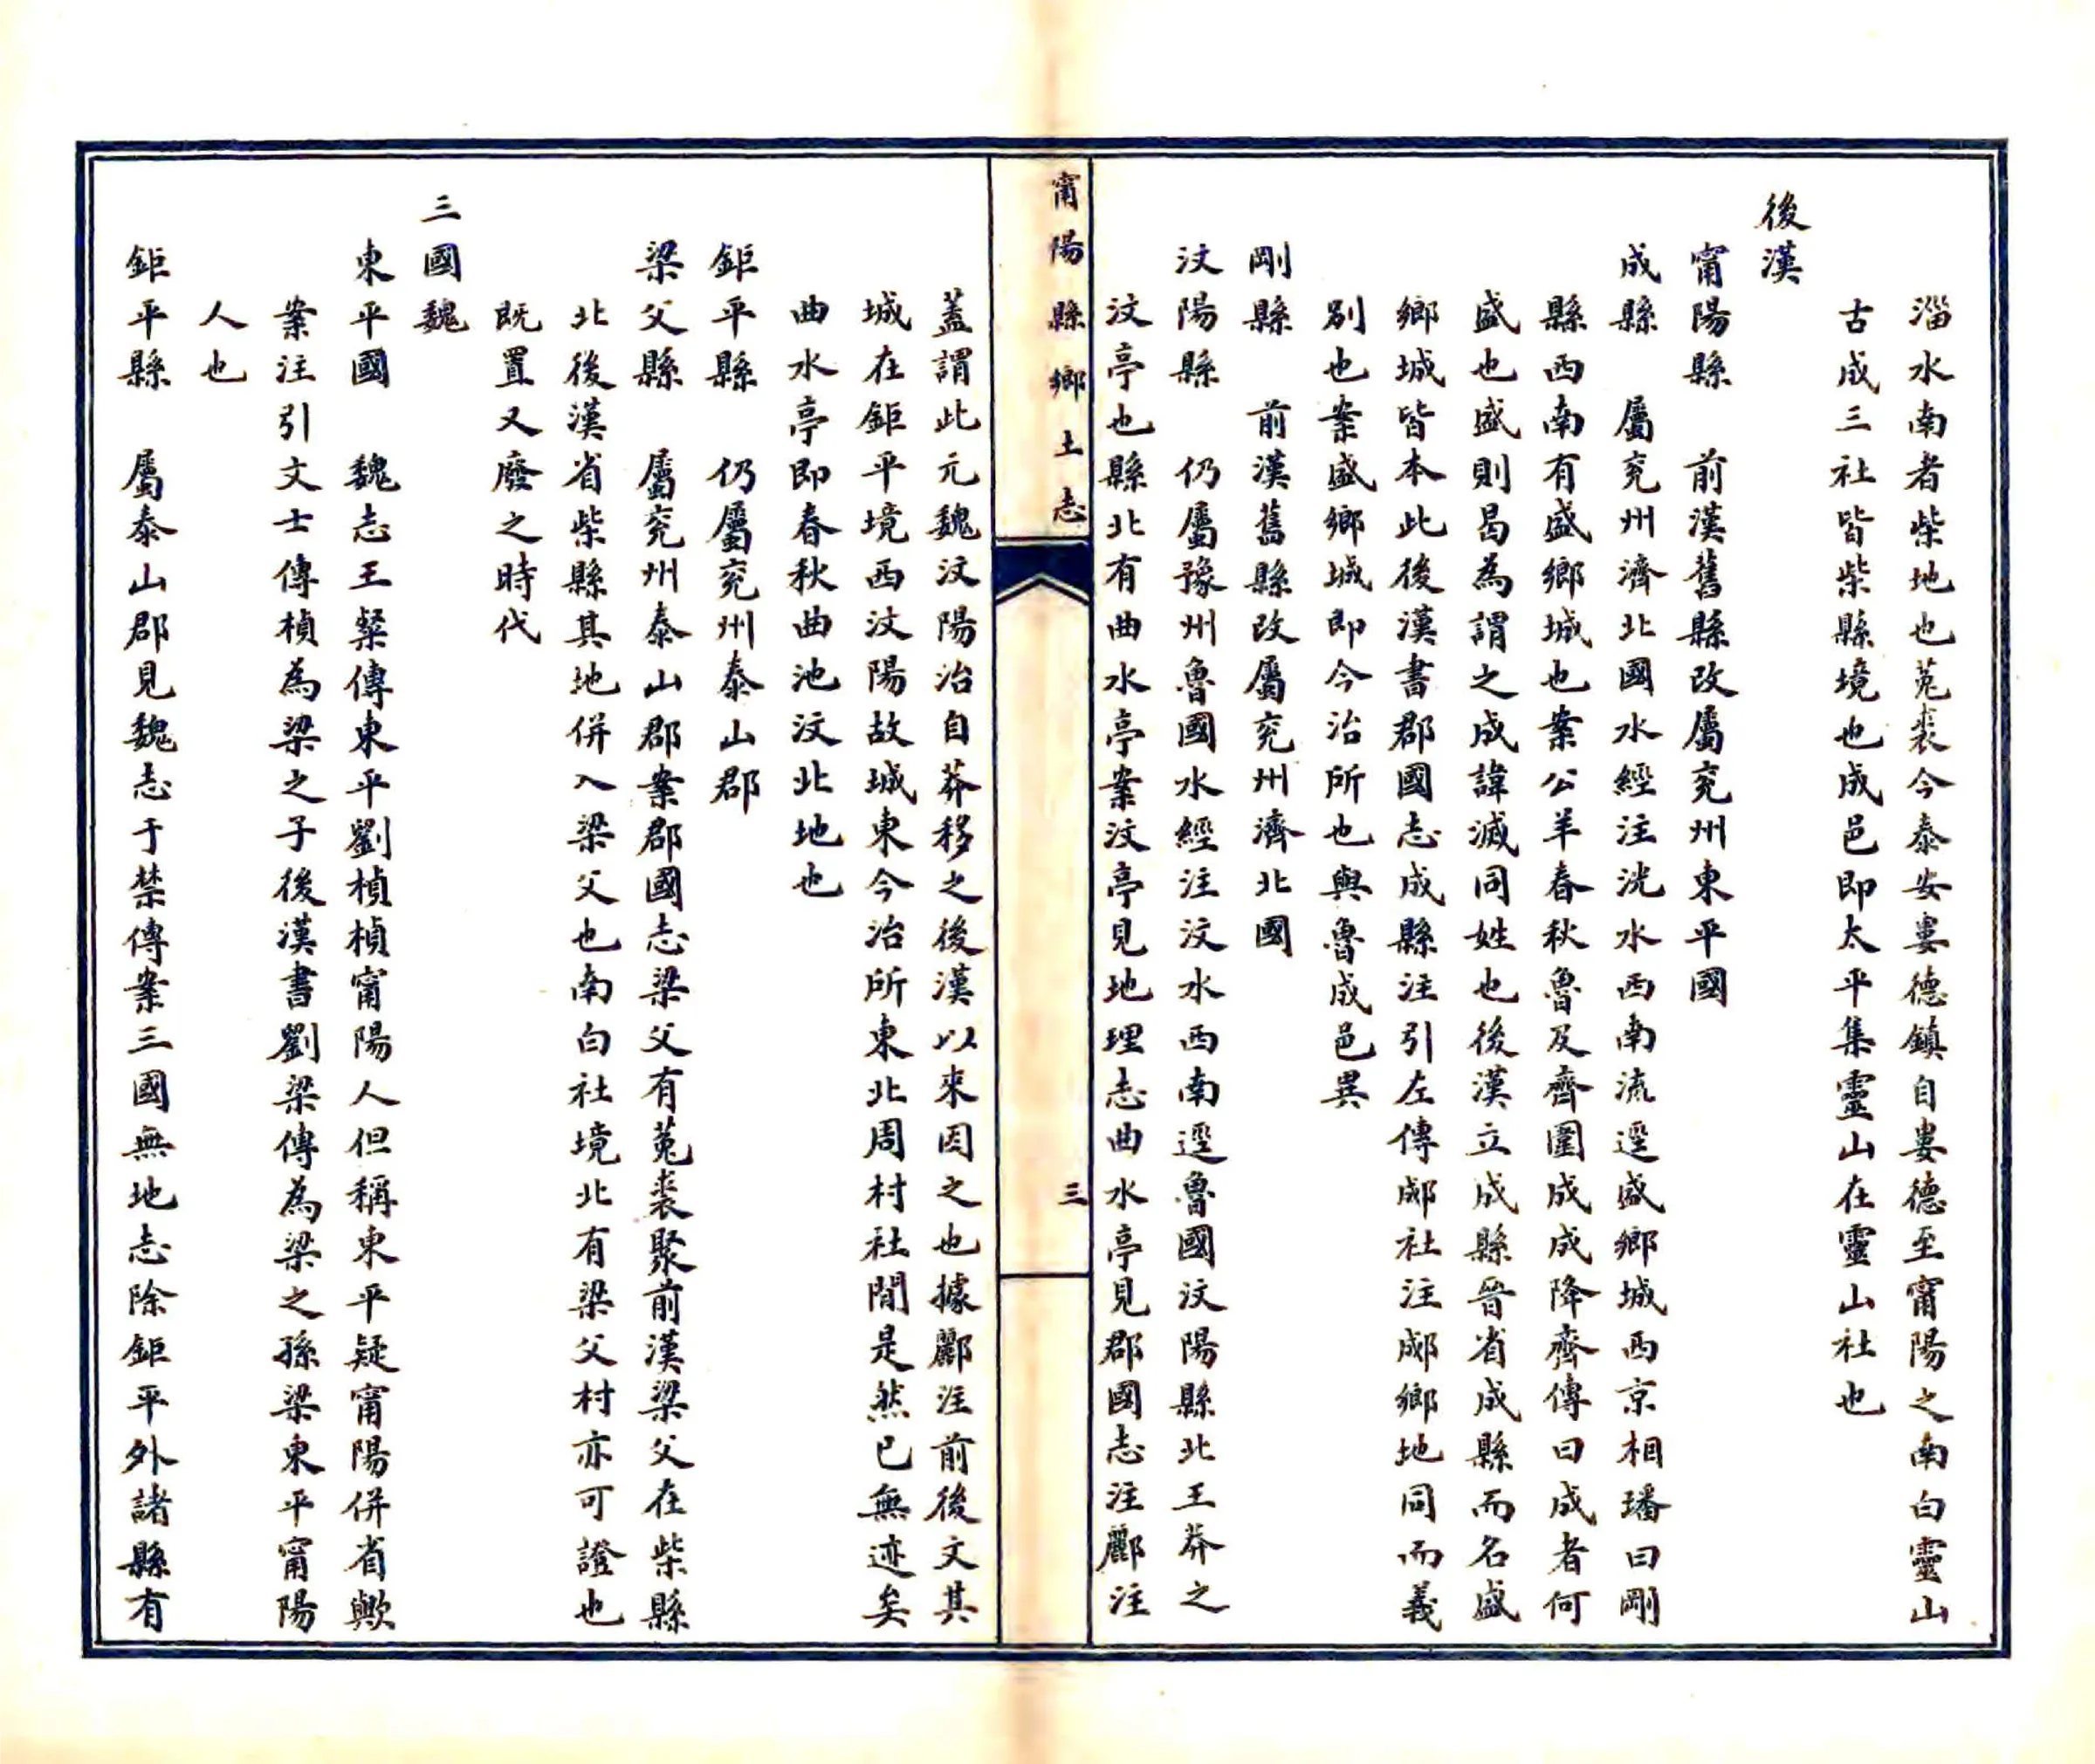 淄水南者柴地也菟裘今泰安婁德鎮自婁德至甯陽之南白靈山
古成三社皆柴縣境也成邑即太平集靈山在靈山社也
後漢
甯陽縣　前漢舊縣改屬兖州東平國
成縣　屬兖州濟北國水經注洸水西南流逕盛鄉城西京相璠曰剛
縣西南有盛鄉城也案公羊春秋魯及齊圍成成降齊傳曰成者何
盛也盛則曷為謂之成諱滅同姓也後漢立成縣晉省成縣而名盛
鄉城皆本此後漢書郡國志成縣注引左傳郕社注郕鄉地同而義
別也案盛鄉城即今治所也與魯成邑異
剛縣　前漢舊縣改屬兖州濟北國
汶陽縣　仍屬豫州魯國水經注汶水西南逕魯國汶陽縣北王莽之
汶亭也縣北有曲水亭案汶亭見地理志曲水亭見郡國志注酈注
甯陽縣鄉土志
三
蓋謂此元魏汶陽治自莽移之後漢以來因之也據酈注前後文其
城在鉅平境西汶陽故城東今治所東北周村社間是然已無迹矣
曲水亭即春秋曲池汶北地也
鉅平縣　仍屬兖州泰山郡
梁父縣　屬兖州泰山郡案郡國志梁父有菟裘聚前漢梁父在柴縣
北後漢省柴縣其地併入梁父也南白社境北有梁父村亦可證也
既置又廢之時代
三國魏
東平國　魏志王粲傳東平劉楨楨甯陽人但稱東平疑甯陽併省歟
案注引文士傳楨為梁之子後漢書劉梁傳為梁之孫梁東平甯陽
人也
鉅平縣　屬泰山郡見魏志于禁傳案三國無地志除鉅平外諸縣有